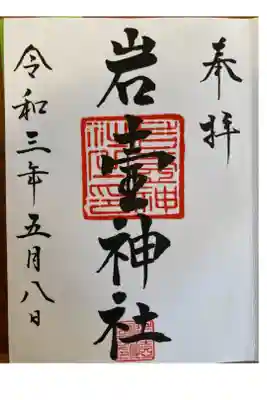 奉拝
岩壷神社
令和三年五月八日